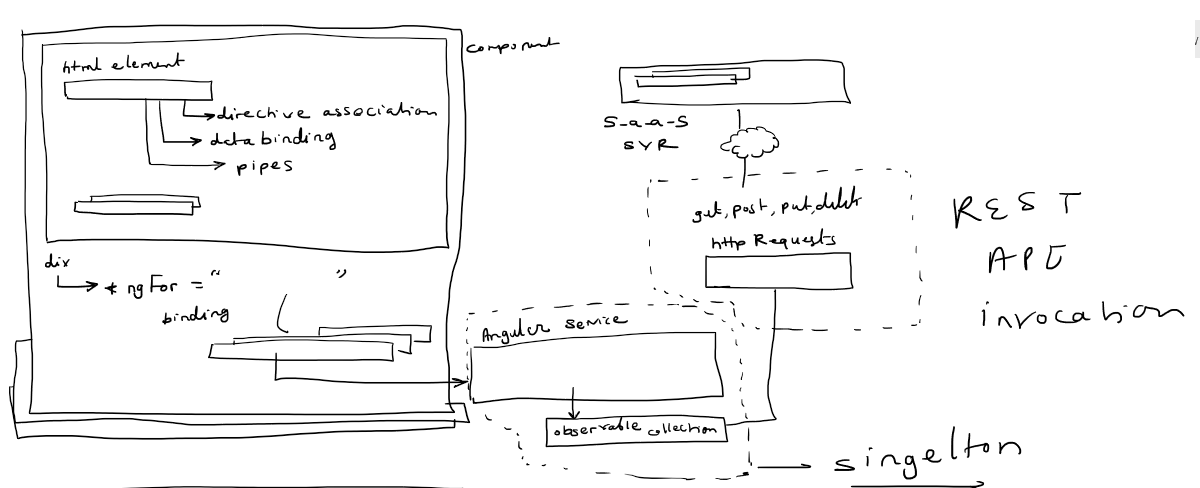 component
html element
directive association
data binding
pipes
div
* ngFor = "          "
binding
S-a-a-S
SVR
get, post, put, delete
http Requests
REST
API
invocation
Angular Service
observable collection
singelton